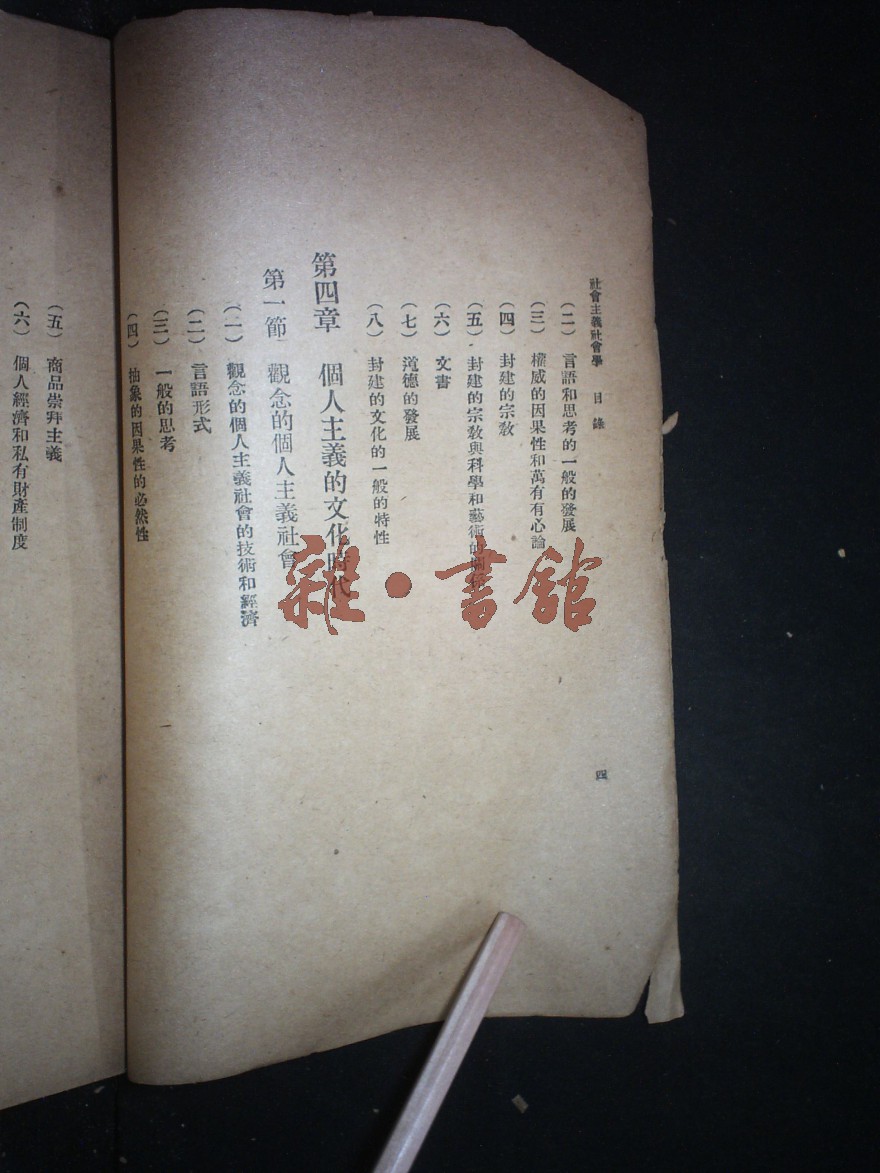 社會主義社會學 目錄
四
(二) 言語和思考的一般的發展
(三) 權威的因果性和萬有有心論
(四) 封建的宗敎
(五) 封建的宗敎與科學和藝術的關係
(六) 文書
(七) 道德的發展
(八) 封建的文化的一般的特性
第四章 個人主義的文化時代
第一節 觀念的個人主義社會
(一) 觀念的個人主義社會的技術和經濟
(二) 言語形式
(三) 一般的思考
(四) 抽象的因果性的必然性
(五) 商品崇拜主義
(六) 個人經濟和私有財產制度
雜·書館